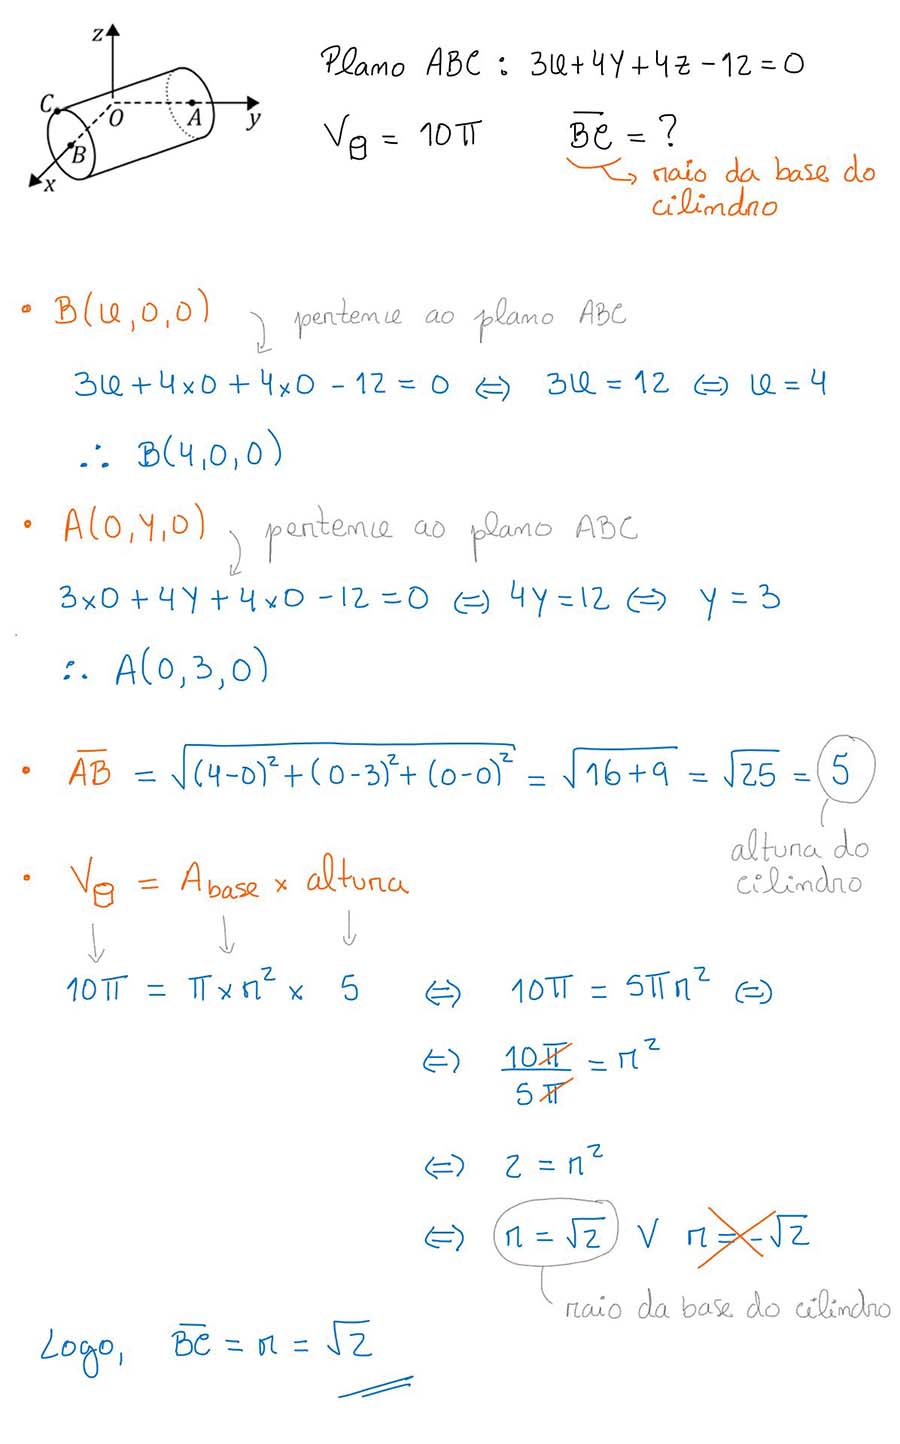 z
C
O
A
y
B
x
Plano ABC : 3x+4y+4z-12=0
V = 10π
BC = ?
raio da base do
cilindro
• B(x,0,0)
pertence ao plano ABC
3x+4×0+4×0-12=0 ⇔ 3x=12 ⇔ x=4
∴ B(4,0,0)
• A(0,y,0)
pertence ao plano ABC
3×0+4y+4×0-12=0 ⇔ 4y=12 ⇔ y=3
∴ A(0,3,0)
• AB = √((4-0)²+(0-3)²+(0-0)²) = √(16+9) = √25 = 5
altura do
cilindro
• V = Abase × altura
10π = π×r² × 5 ⇔ 10π = 5πr² ⇔
⇔ 10π/5π = r²
⇔ 2 = r²
⇔ r = √2 ∨ r = -√2
raio da base do cilindro
Logo, BC = r = √2